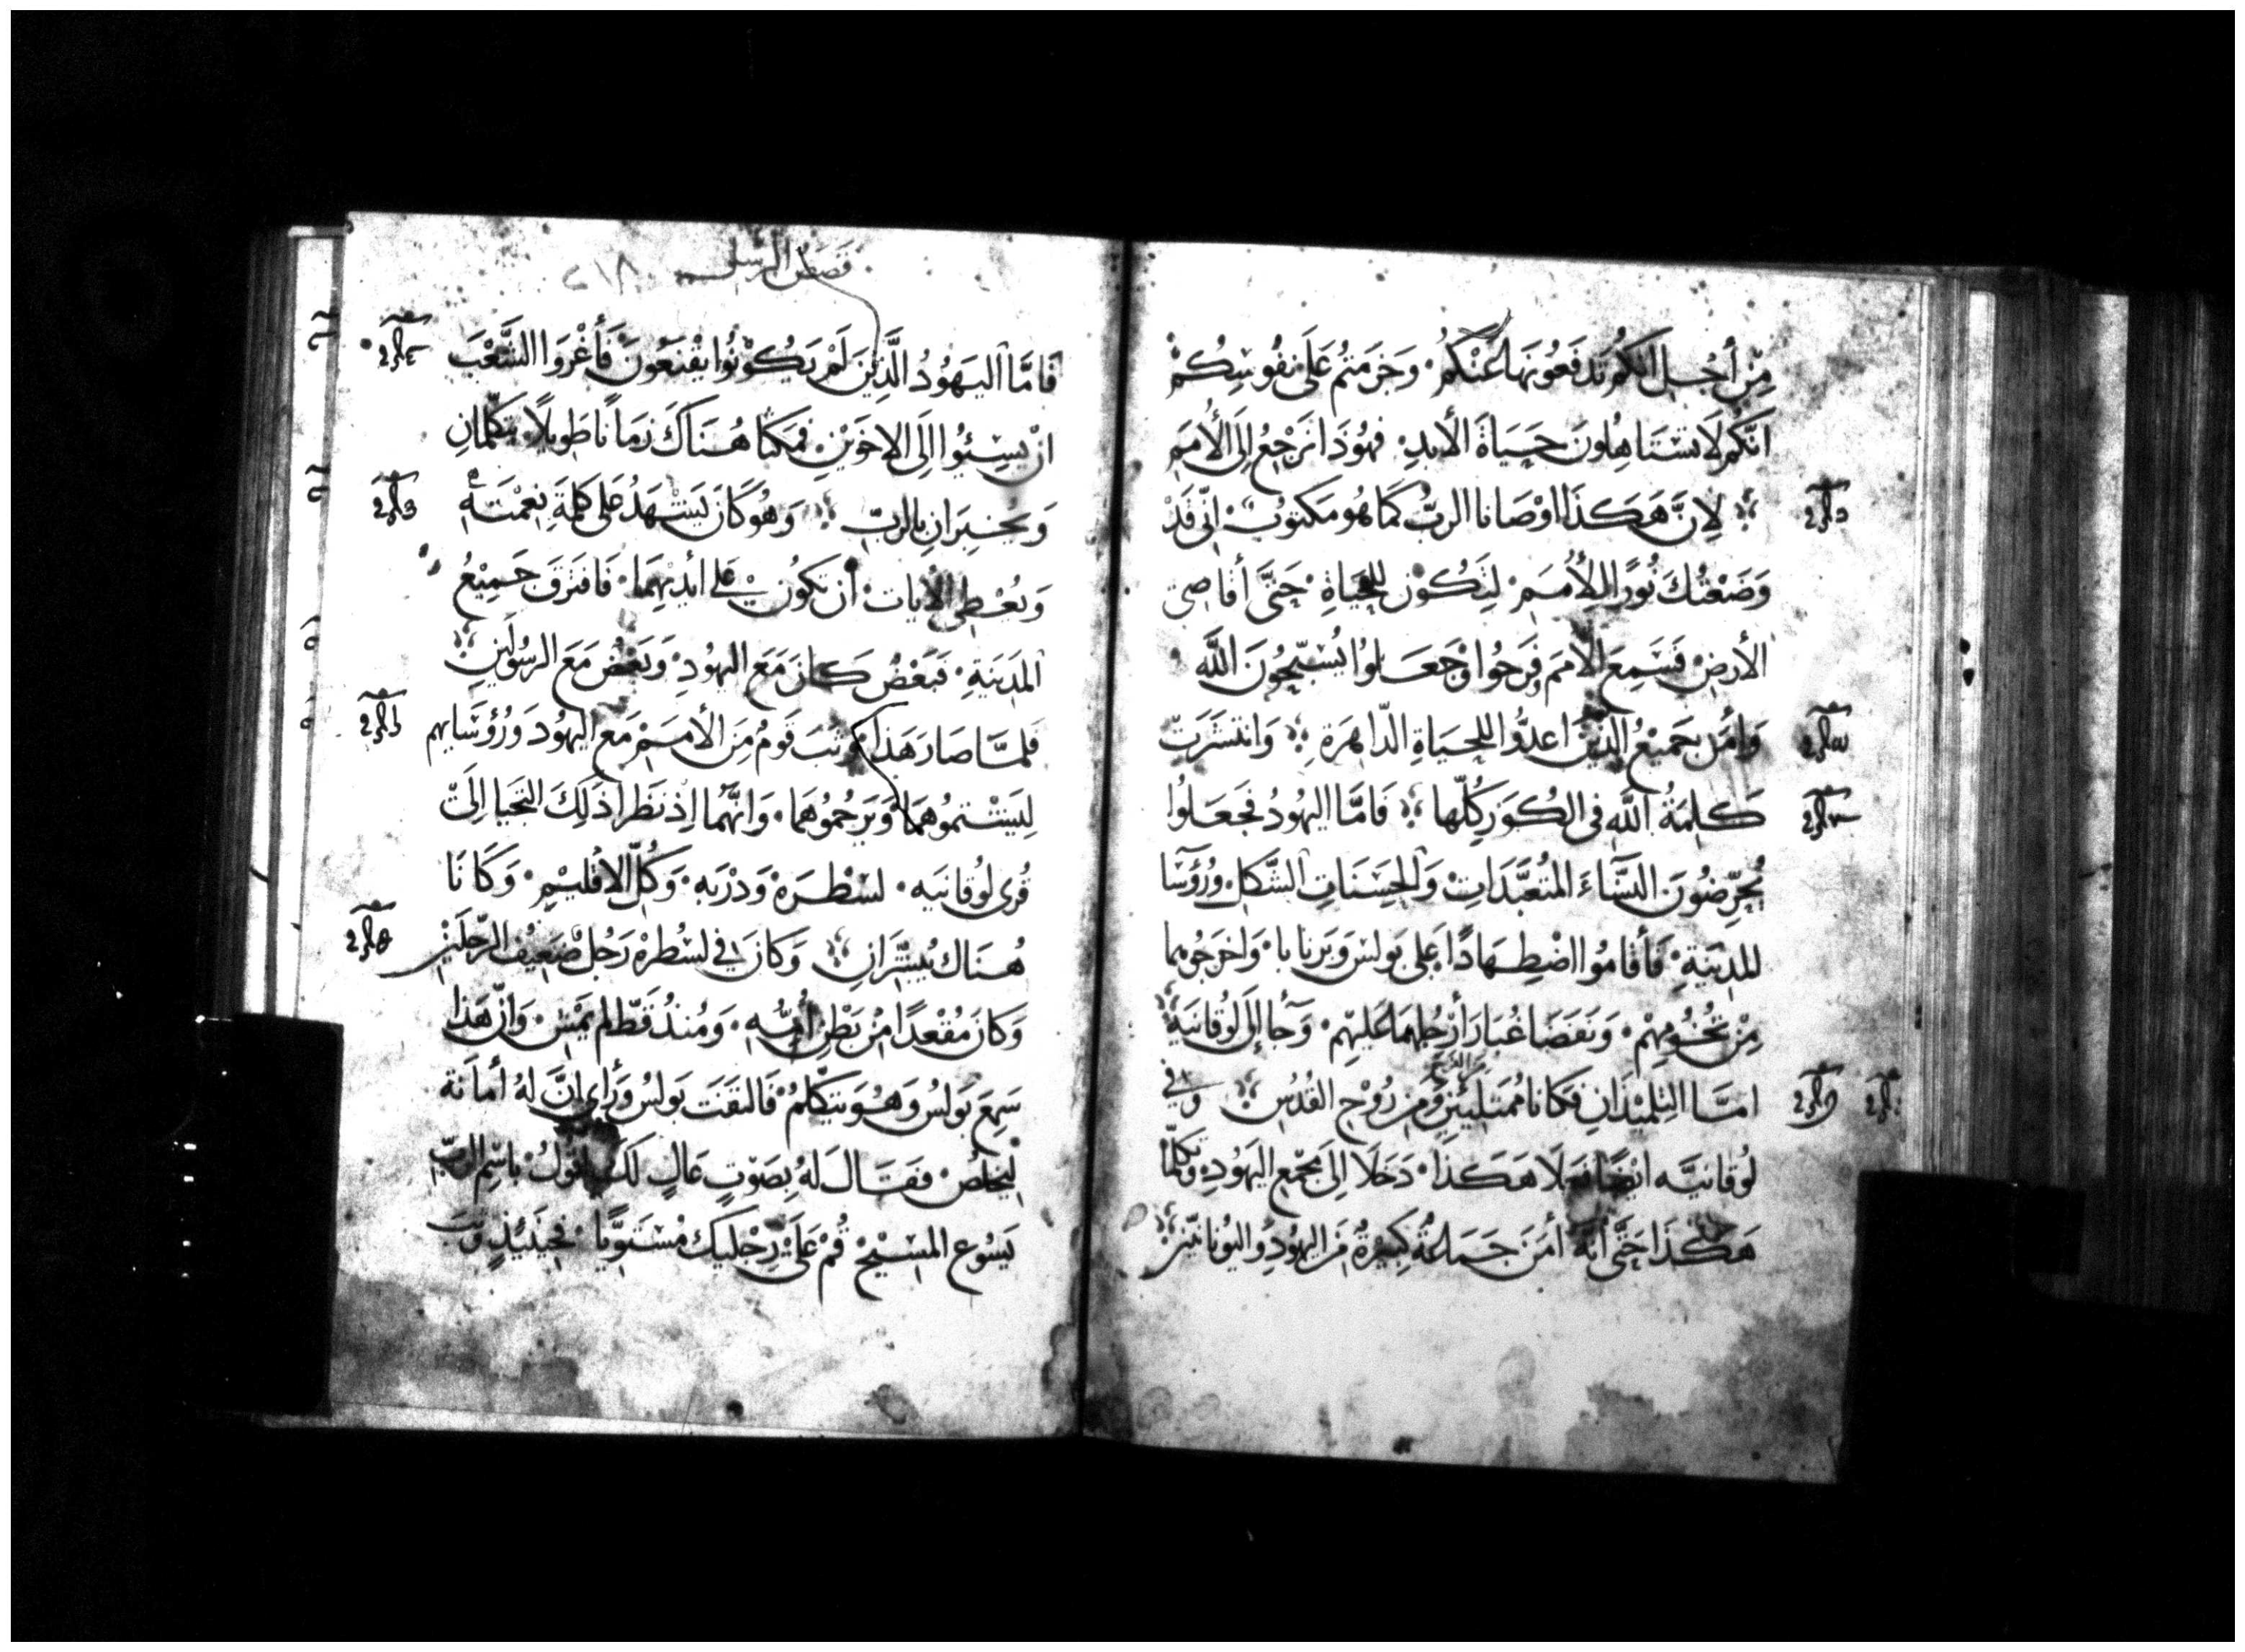 مِنْ أَجْلِ انَّكُم تَدفَعُونَهَا عَنْكُمُ. وَجَزَمتُم عَلَى نُفُوسِكُمْ
انَّكُم لَا تَسْتَاهِلُونَ حَيَاةَ الأَبدِ. فهُوَذَا نَرْجِعُ إِلَى الأُمَمِ
لِانَّ هَكَذَا اوْصَانا الربُّ كَمَا هُو مَكتوُبٌ انِّي قَدْ
وَضَعْتُكَ نُورًا لِلأُمَمِ. لِتَكُوْن لِلحَيَاةِ. حَتَّى أَقَاصِي
الأَرضِ فَسَمِعَ الأُمَم وفَرِحُوا وَجَعَلوُا يُسَبِّحُونَ اللَّه
وَأمَن جَمِيْعُ الَّذِيْنَ اعدُّوا لِلحَيَاةِ الدَّاهِرَةِ وَانتشَرَتْ
كَلِمَةُ اللَّه فى الكُوَر كُلِّها فَامَّا اليَهُودُ فَجَعَلوُا
يُحَرِّضوُنَ النِّسَاءَ المُتَعَبِّدَاتِ وَالحَسَنَاتِ الشَّكلِ. وَرُؤَسَا
المدِينَةِ. فَأَقَامُوا اضْطِهَادًا عَلى بَولس وَبَرنابا. وَاخرَجُوهما
مِنْ تُخُوْمِهِمْ. وَنَفَضَا غُبَارَ أَرْجُلهمَا عَلَيهِم. وَجآا إِلَى لوُقَانيَه
امَّا التِلمِيْذَانِ فَكَانا مُمتَلِئَينِ مِن رُوْحِ القُدُسِ وَفي
لوُقَانيَّه ايْضًا فَعَلَا هَكَذَا. دَخَلَا إِلَى مَجْمَعِ اليَهُودِ وَتَكلَّمَا
هَكَذَا حَتَّى أَنَّه أمَنَ جَمَاعَةُ كَبِيْرَةُ مِنَ اليهُودِ وَاليُونانيّين
قصص الرسل ٢١٨
فَامَّا اليَهُوُدُ الَّذِيْنَ لَمْ يَكُوْنُوا يَقْنَعُونَ فَأَغْرَوا الشَّعْبَ
انْ يُسِيئُوا إِلَى الاخَوَيْنِ. فَمَكَثَا هُنَاكَ زَمَانًا طَوِيلًا. يتَكَلَّمانِ
وَيُخبِرَانِ بِالربِّ وَهُوَ كَانَ يَشْهَدُ عَلى كَلِمَةِ نِعْمَتَهُ
وَيُعْطِي الآيات. أن تكُون عَلى أيْديْهِمَا. فَافتَرَقَ جَمِيْعُ
المَدِيَنةِ. فَبَعْضُ كَانَ مَعَ اليَهُودِ. وَبَعْض مَعَ الرسُولَينِ
فَلمَّا صَارَ هَذَا وَثَبَ قَومُ مِنَ الأمَمْ مَع اليهُود وَرُؤَسَايهم
لِيَشْتمُوهُمَا وَيَرجُمُوهُمَا. وَانَّهُمَا اِذ نَظَرا ذَلِكَ التجَيا إِلَى
قُرى لوُقانيَه. لسْطْرَهْ وَدرْبَه. وَكُلِّ الاقْلِيْمِ. وَكَانَا
هُنَاك يُبشِّرَانِ وَكانَ في لسْطرهْ رَجُل ضَعِيْف الرّجلَينْ
وَكانَ مُقْعَدًا مِنْ بَطْنِ أُمِّهِ. وَمُنذُ قَطّ لم يَمْشِ. وَانّ هَذا
سَمِعَ بَولُس وَهُوَ يتَكَلّمُ. فَالتفَتَ بَولسُ وَرأى انَّ لهُ أمانَة
لِيخلُصَ. فَقَالَ لَهُ بِصَوْتٍ عَالٍ لَكَ اقولُ. باسْمِ الربِّ
يَسُوع المَسِيْحِ قُمْ عَلَى رِجْليكَ مُسْتَوِيًا. فحِيْنَيِذٍ وَثبَ